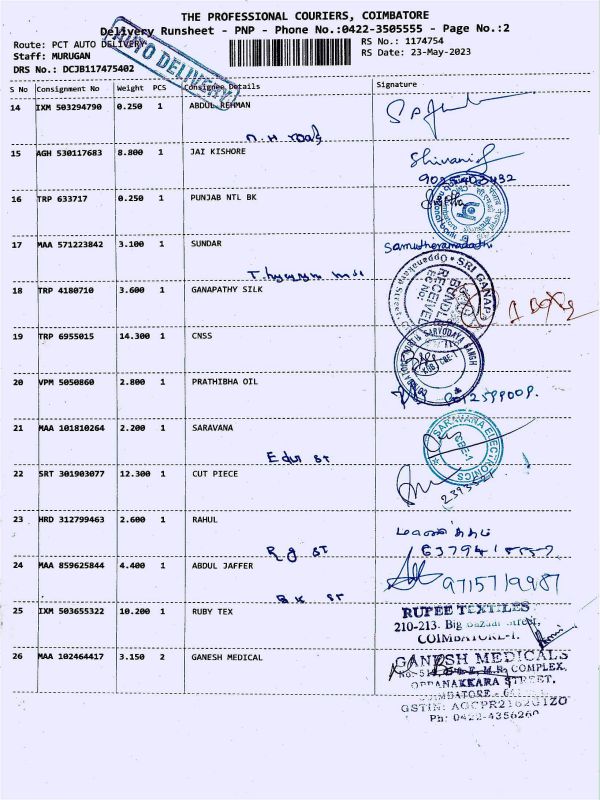 THE PROFESSIONAL COURIERS, COIMBATORE
Delivery Runsheet - PNP - Phone No.:0422-3505555 - Page No.:2
Route: PCT AUTO DELIVERY
RS No.: 1174754
Staff: MURUGAN
RS Date: 23-May-2023
DRS No.: DCJB117475402
AUTO DELIVERY
S No Consignment No Weight PCS Consignee Details Signature
14 IXM 503294790 0.250 1 ABDUL REHMAN
N.H road
15 AGH 530117683 8.800 1 JAI KISHORE
Shivani
16 TRP 633717 0.250 1 PUNJAB NTL BK
17 MAA 571223842 3.100 1 SUNDAR
18 TRP 4180710 3.600 1 GANAPATHY SILK
SRI GANAPA
Oppanakara Street
BUNDLE
RECEIVE
19 TRP 6955015 14.300 1 CNSS
SARVODAYA SANGH
CBE-1
20 VPM 5050860 2.800 1 PRATHIBHA OIL
21 MAA 101810264 2.200 1 SARAVANA
SARAVANA ELECTRONICS
CBE-1
22 SRT 301903077 12.300 1 CUT PIECE
23 HRD 312799463 2.600 1 RAHUL
R g st
24 MAA 859625844 4.400 1 ABDUL JAFFER
9715719987
25 IXM 503655322 10.200 1 RUBY TEX
RUPEE TEXTILES
210-213, Big Bazaar Street,
COIMBATORE-1.
26 MAA 102464417 3.150 2 GANESH MEDICAL
GANESH MEDICALS
COMPLEX,
OPPANAKKARA STREET,
COIMBATORE
GSTIN:
Ph: 0422-4356260